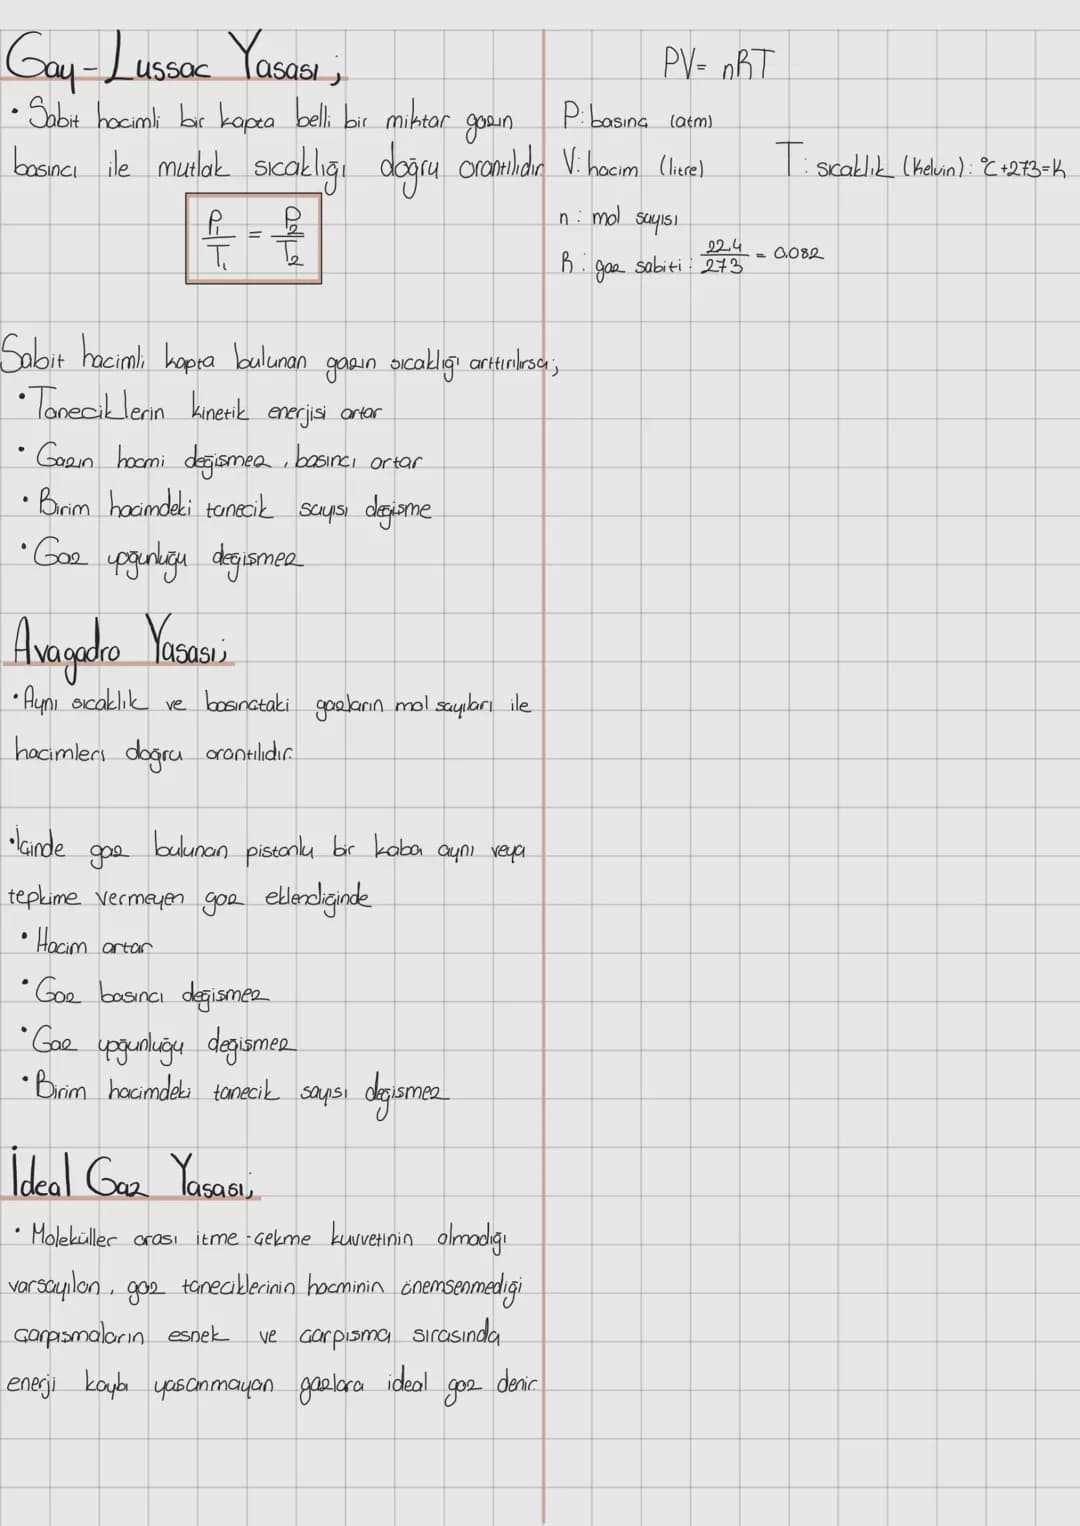 Gay-Lussac Yasası;
• Sabit hacimli bir kapta belli bir miktar gazın
basıncı ile mutlak sıcaklığı doğru orantılıdır
P₁/T₁ = P₂/T₂
Sabit hacimli kapta bulunan gazın sıcaklığı arttırılırsa;
• Taneciklerin kinetik enerjisi artar
• Gazın hacmi değişmez, basıncı artar
• Birim hacimdeki tanecik sayısı değişme
• Gaz yoğunluğu değişmez
Avagadro Yasası;
• Aynı sıcaklık ve basınçtaki gazların mol sayıları ile
hacimleri doğru orantılıdır.
• İçinde gaz bulunan pistonlu bir kaba aynı veya
tepkime vermeyen gaz eklendiğinde
• Hacim artar
• Gaz basıncı değişmez
• Gaz yoğunluğu değişmez
• Birim hacimdeki tanecik sayısı değişmez
İdeal Gaz Yasası;
• Moleküller arası itme-çekme kuvvetinin olmadığı
varsayılan, gaz taneciklerinin hacminin önemsenmediği
çarpışmaların esnek ve çarpışma sırasında
enerji kaybı yaşanmayan gazlara ideal gaz denir.
PV= nRT
P: basınç (atm)
V: hacim (litre) T: sıcaklık (Kelvin): °C+273=K
n: mol sayısı
R: gaz sabiti: 22.4/273 = 0.082